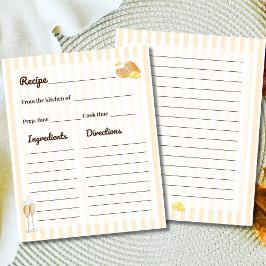 Recipe
From the kitchen of
Prep. time Cook time
Ingredients Directions